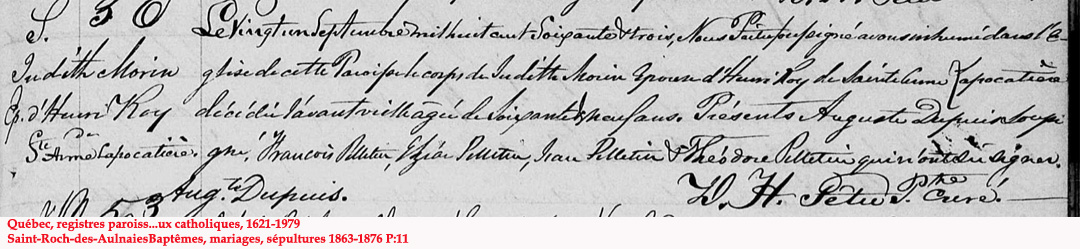 S. 30
Judith Morin
Ep. d'Henri Roy
de
Ste Anne Lapocatière.
Le vingt un Septembre mil huit cent Soixante & trois, Nous Ptre soussigné avons inhumé dans l'é-
glise de cette Paroisse le corps de Judith Morin Epouse d'Henri Roy de Sainte Anne Lapocatière
décédée l'avant veille agée de Soixante & neuf ans. Présents Auguste Dupuis soussi-
gné, François Pelletier, Elzéar Pelletier, Jean Pelletier & Théodore Pelletier qui n'ont su signer.
Aug.te Dupuis.
D. H. Têtu Ptre Curé.
Québec, registres paroiss...ux catholiques, 1621-1979
Saint-Roch-des-AulnaiesBaptêmes, mariages, sépultures 1863-1876 P:11